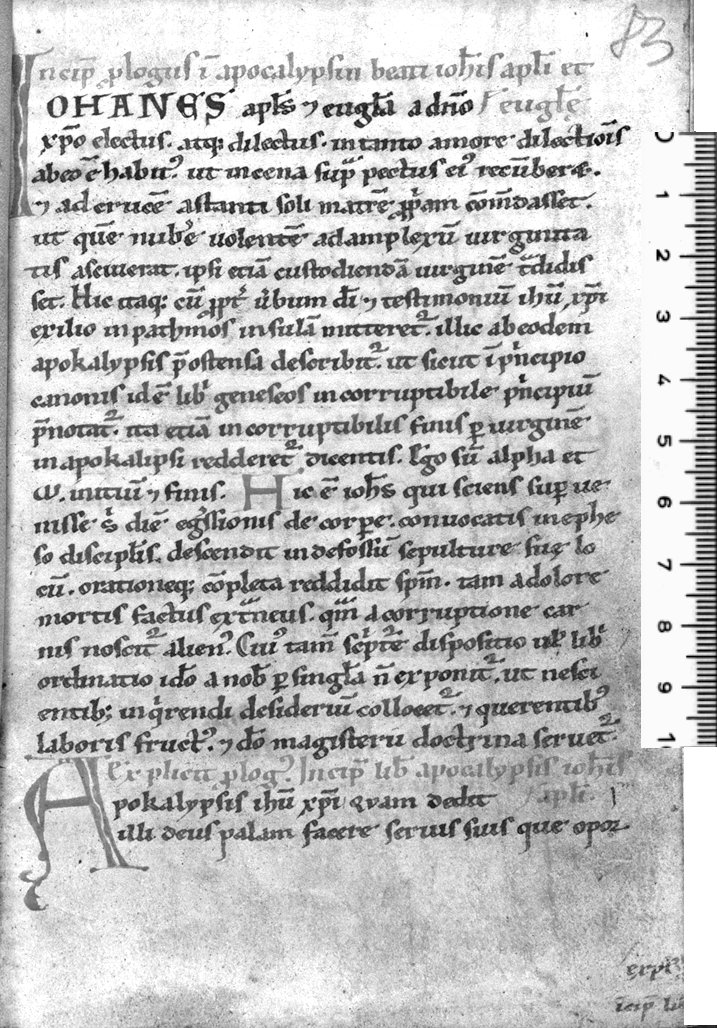 83
Incip̄ ꝓlogus ī apocalypsin beati ioh̄is apl̄i et
IOHANES apl̄s ⁊ eugl̄a a dn̄o eugl̄ę
xp̄o electus. atq; dilectus. in tanto amore dilectiōis
ab eo ē habit᷒. ut in cena sup̄ pectus ei᷒ recūberæ.
⁊ ad crucē astanti soli matrē ꝓp̄am cōm̄dasset.
ut quē nub̄e uolentē ad amplexū uirginita
tis asciuerat. ipsi etiā custodiendā uirginē t̄didis
set. Hic itaq; cū ꝓpt̄ ūbum dī ⁊ testimoniū ih̄u xp̄i
exilio in pathmos insulā mitteret᷑. illic ab eodem
apokalypsis p̄ostensa describit᷑. ut sicut ī p̄ncipio
canonis id ē lib̄ geneseos incorruptibile p̄ncipiū
p̄notat᷑. ita etiā incorruptibilis finis ꝑ uirginē
in apokalipsi redderet᷑ dicentis. Ego sū alpha et
ω. initiū ⁊ finis. Hic ē ioh̄s qui sciens sup̄ ue
nisse s̄ diē egs̄sionis de corꝑe. conuocatis in ephe
so discipl̄is. descendit in defossū sepulture suę lo
cū. orationeq; cōpleta reddidit sp̄m. tam a dolore
mortis factus ext̄neus. q̄m a corruptione car
nis noscit᷑ alien᷒. Cui᷒ tam̄ sc̄ptē dispositio ul̄ lib̄
ordinatio idō a nob̄ ꝑ singl̄a n̄ exponit᷑. ut nesci
entib; inq̄rendi desideriū collocet᷑. ⁊ querentib᷒
laboris fruct᷒. ⁊ dō magisterii doctrina seruet᷑.
Explicit ꝓlog᷒. Incip̄ lib̄ apocalypsis ioh̄is
Apokalypsis ih̄u xp̄i quam dedit apl̄i.
illi deus palam facere seruis suis que opor